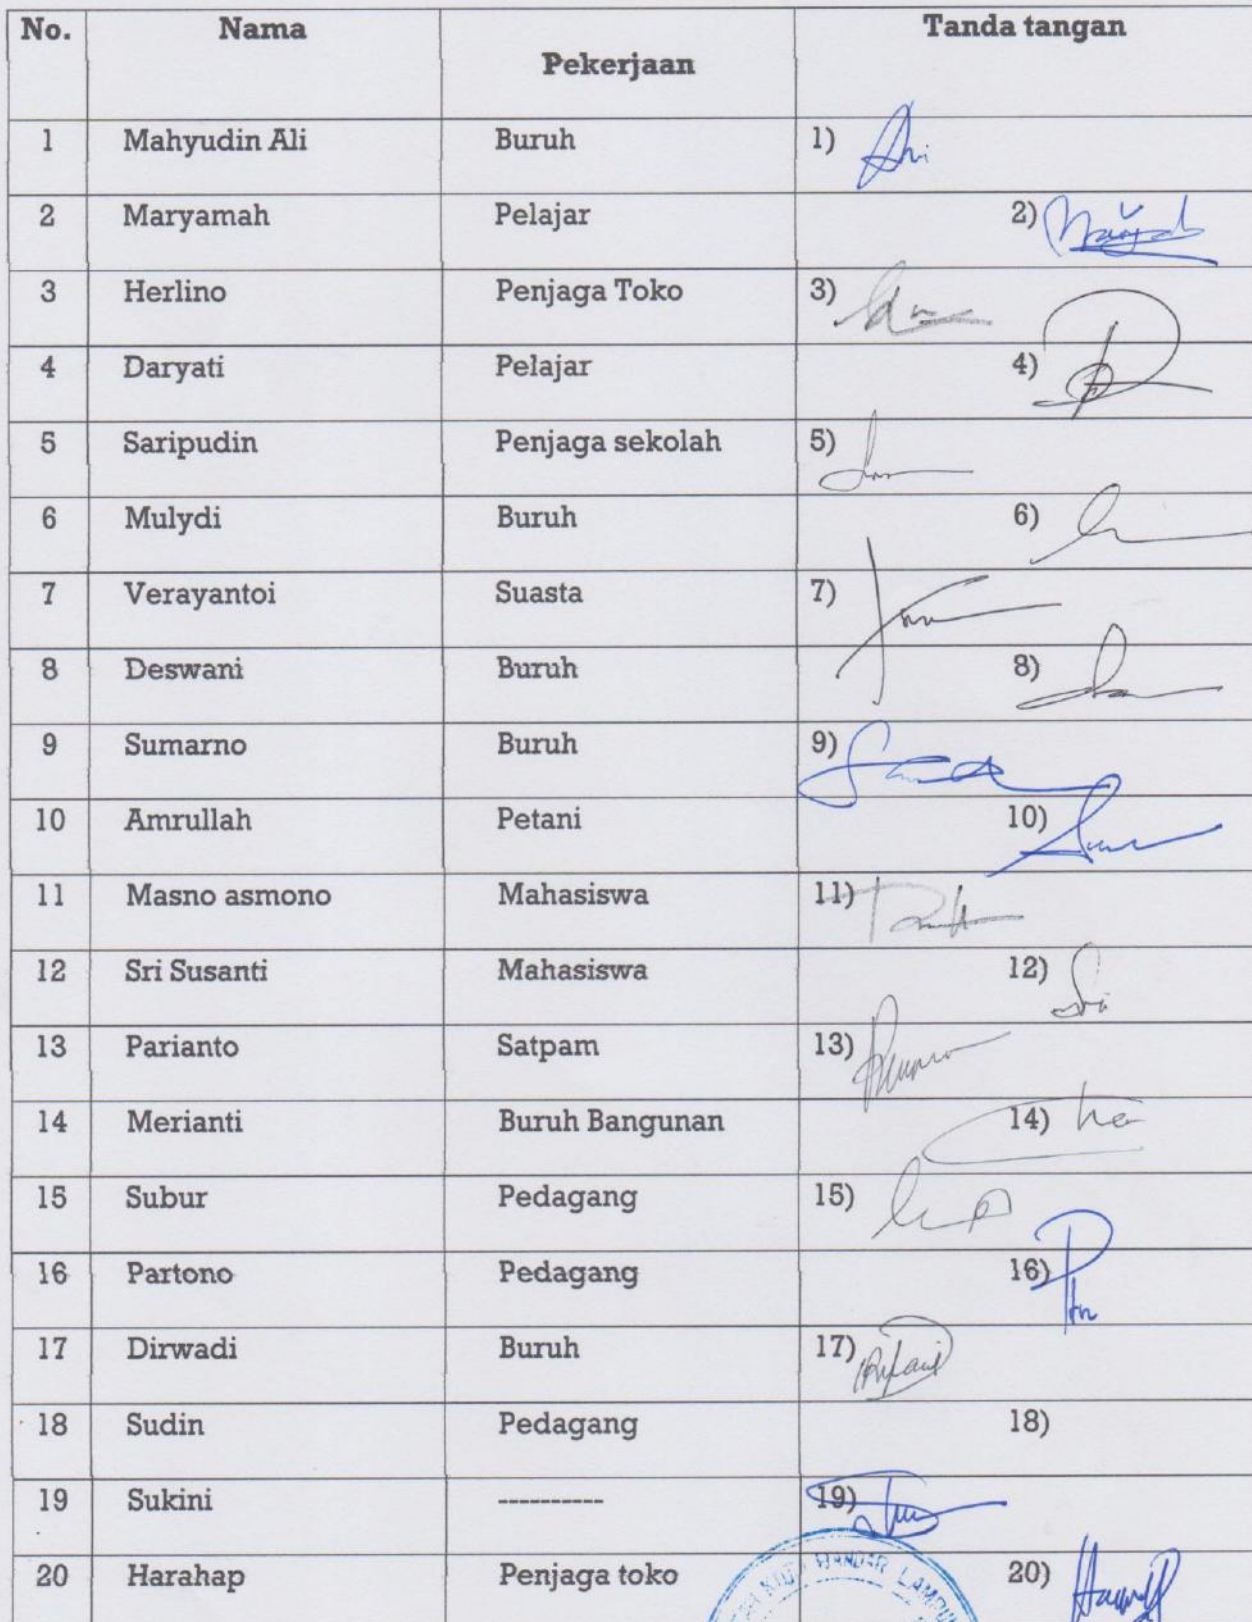 No. Nama Pekerjaan Tanda tangan
1 Mahyudin Ali Buruh 1)
2 Maryamah Pelajar 2)
3 Herlino Penjaga Toko 3)
4 Daryati Pelajar 4)
5 Saripudin Penjaga sekolah 5)
6 Mulydi Buruh 6)
7 Verayantoi Suasta 7)
8 Deswani Buruh 8)
9 Sumarno Buruh 9)
10 Amrullah Petani 10)
11 Masno asmono Mahasiswa 11)
12 Sri Susanti Mahasiswa 12)
13 Parianto Satpam 13)
14 Merianti Buruh Bangunan 14)
15 Subur Pedagang 15)
16 Partono Pedagang 16)
17 Dirwadi Buruh 17)
18 Sudin Pedagang 18)
19 Sukini ---------- 19)
20 Harahap Penjaga toko 20)